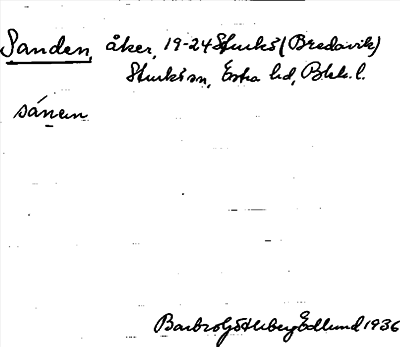 Sanden, åker, 19-24 Sturkö (Bredavik)
Sturkö sn, Östra hd, Blek. l.
sánen
Barbro Götlberg Edlund 1936